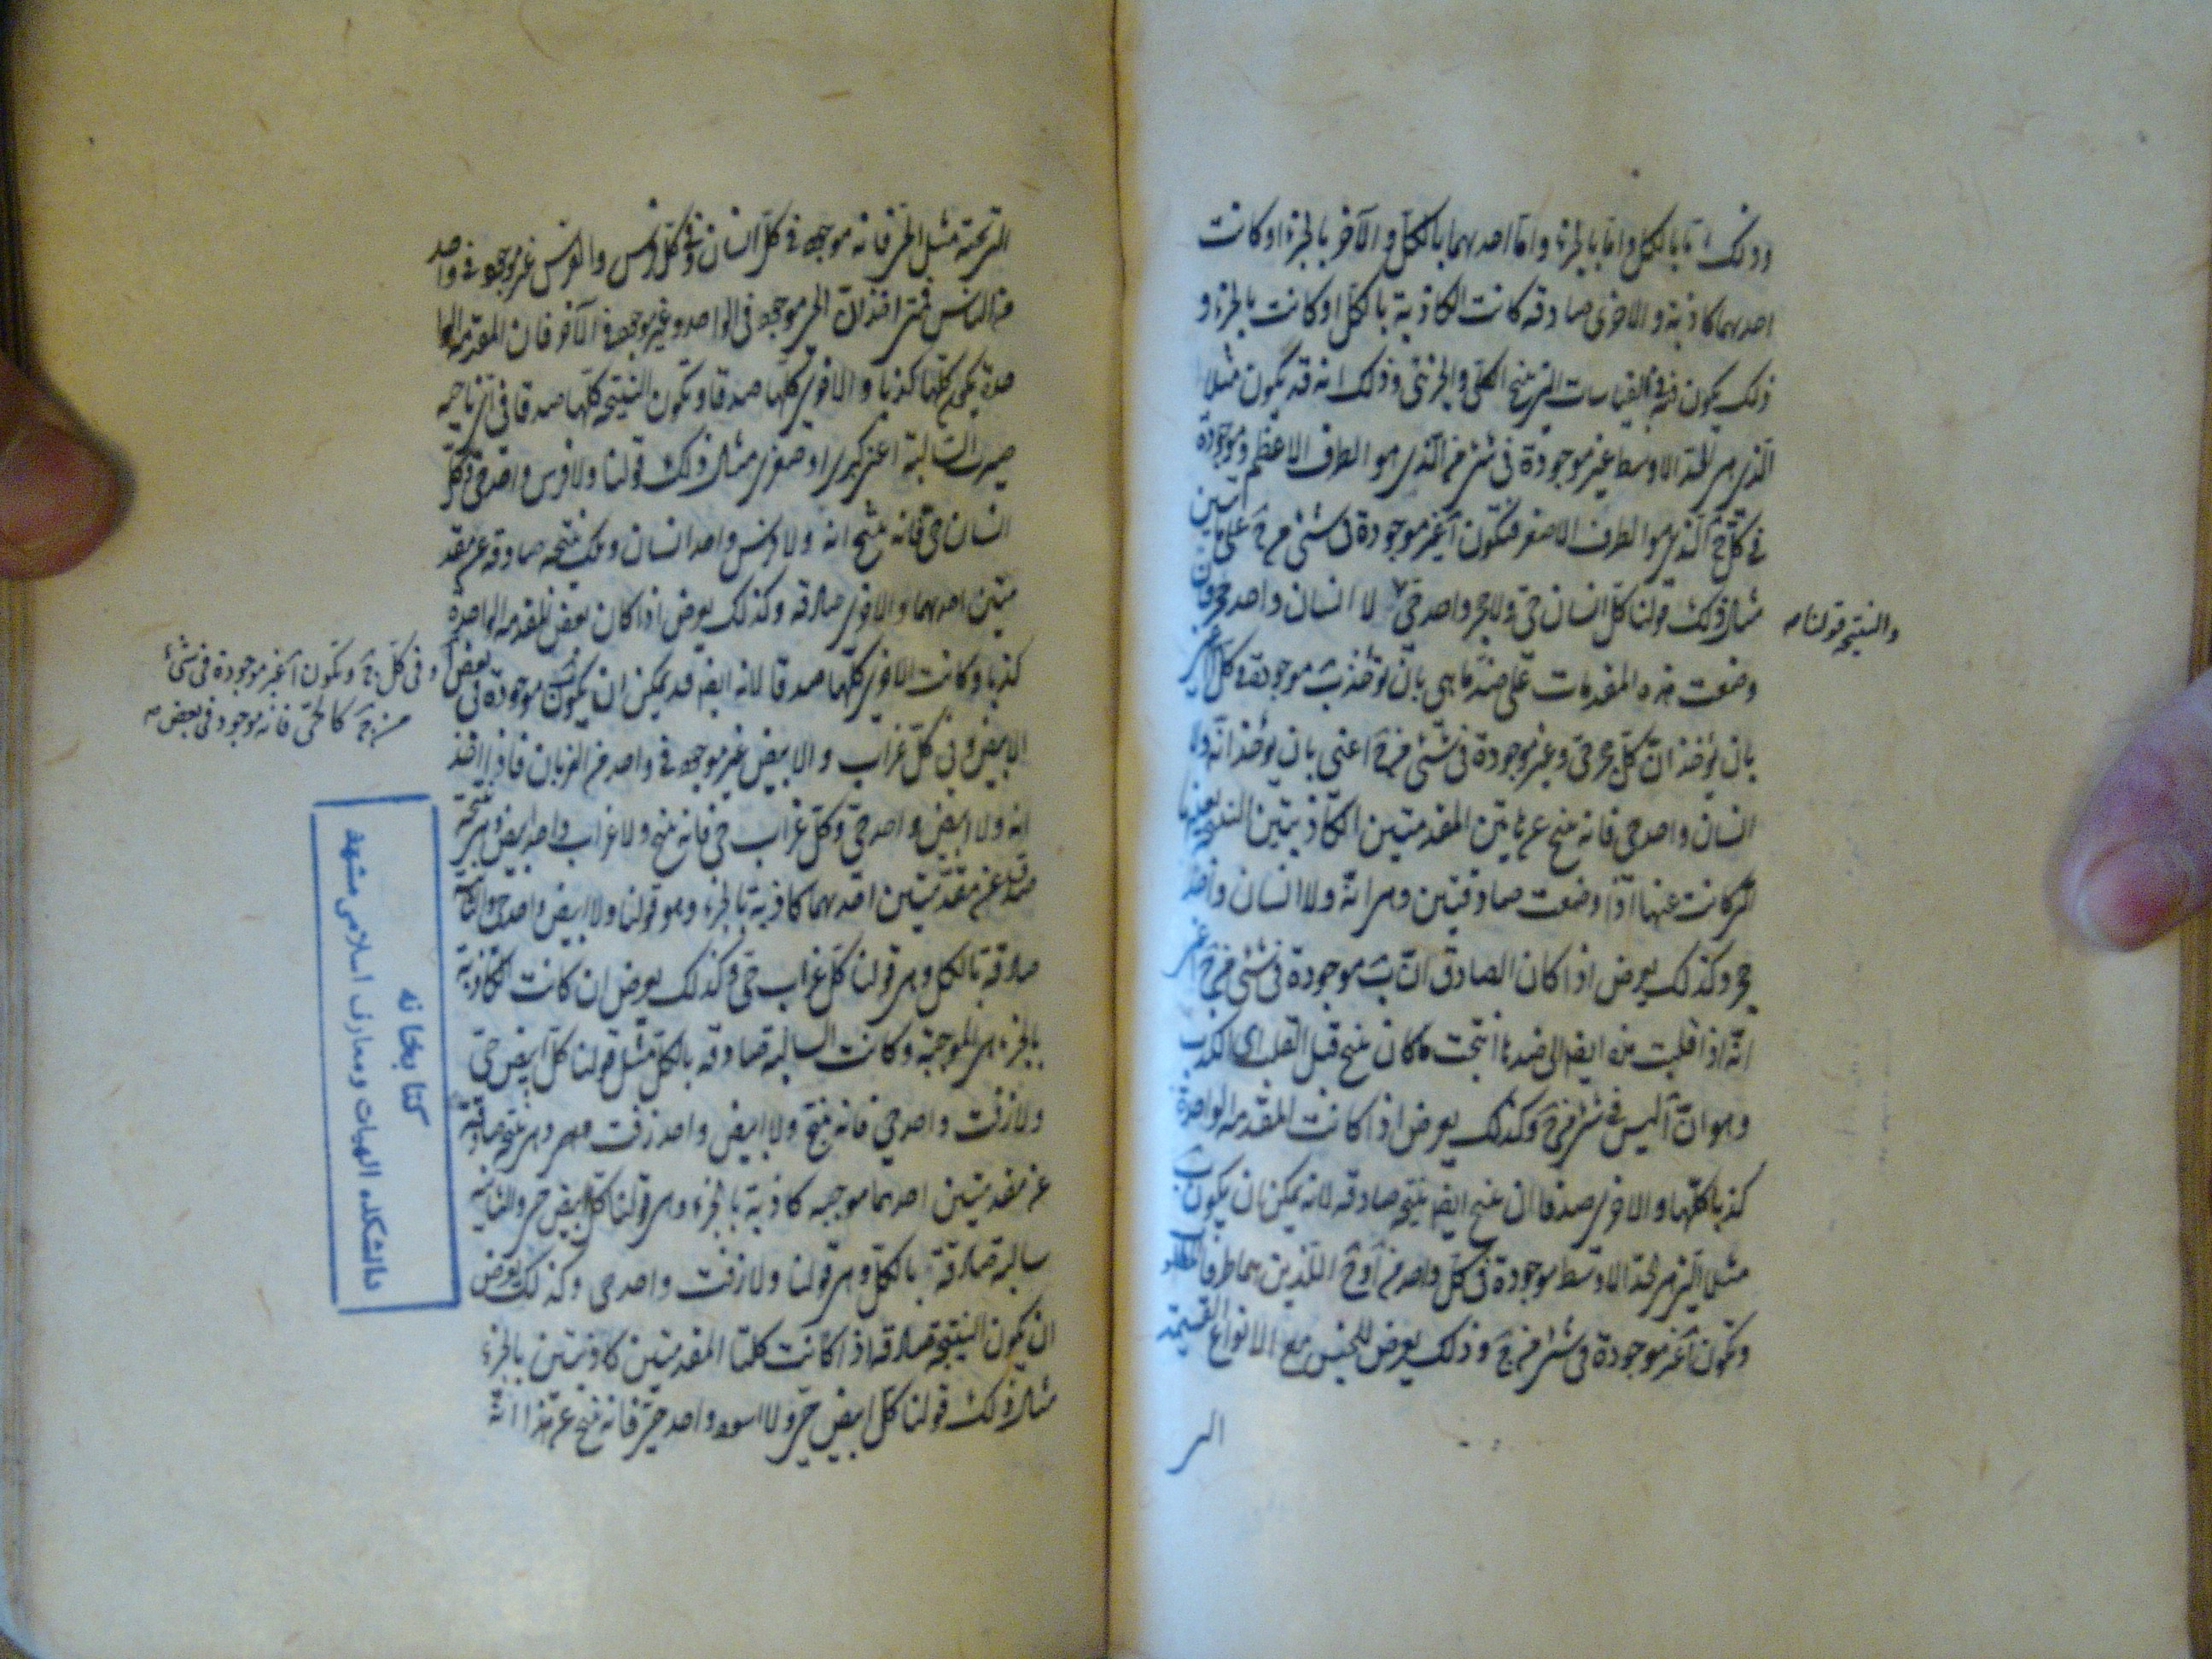 وذلك اما بالكل واما بالجزء واما احدهما بالكل والآخر بالجزء او كانت
احدهما كاذبة والاخرى صادقه كانت الكاذبة بالكل او كانت بالجزء و
ذلك يكون في القياسات التى ينتج الكلى والجزئى وذلك انه قد يكون مثلا
الذى هو الحد الاوسط غير موجودة فى شئ من الذى هو الطرف الاعظم وموجودة
فى كل ج الذى هو الطرف الاصغر فتكون آ غير موجودة فى شئ من ج
مثال ذلك قولنا كل انسان حى ولا حجر واحد حى لا انسان واحد حجر فان
والنتيجه قولنا
وضعت هذه المقدمات على ضد ما هى بان تؤخذ ب موجودة فى كل
بان يؤخذ ان كل حجر حى وغير موجودة فى شئ من آ اعنى بان يؤخذ انه ولا
انسان واحد حى فانه ينتج عن هاتين المقدمتين الكاذبتين النتيجة بعينها
التى كانت عنها اذا وضعت صادقتين وهى انه ولا انسان واحد
حجر وكذلك يعرض اذا كان الصادق ان ب موجودة فى شئ من ج
انه اذا قلبت هذه ايضا الى ضدها انتجت ما كان ينتج قبل القلب
وهو ان آ ليس فى شئ من ج وكذلك يعرض اذا كانت المقدمه الواحدة
كذبا كلها والاخرى صدقا ان ينتج ايضا نتيجه صادقه لانه يمكن ان يكون
مثلا التى هى الحد الاوسط موجودة فى كل واحد من آ و ج اللذين هما طرفا
وتكون آ غير موجودة فى شئ من ج وذلك يعرض للجنس مع الانواع القسيمة
التى
التى تحته مثل الحى فانه موجود فى كل انسان وفى كل فرس والفرس غير موجود فى واحد
من الناس فمتى اخذ ان الحى موجود فى الواحد وغير موجود فى الآخر فان المقدمه الوا
حدة تكون كلها كذبا والاخرى كلها صدقا وتكون النتيجه كلها صدقا فى اى ناحيه
صيرت السالبة اعنى كبرى او صغرى مثال ذلك قولنا ولا فرس واحد حى وكل
انسان حى فانه ينتج انه ولا فرس واحد انسان وتلك نتيجه صادقه عن مقد
متين احدهما والاخرى صادقه وكذلك يعرض اذا كان بعض المقدمه الواحدة
كذبا وكانت الاخرى كلها صدقا لانه ايضا قد يمكن ان يكون ب موجودة فى بعض آ
وفى كل ج وتكون آ غير موجودة فى شئ
من ج كالحى فانه موجود فى بعض
الابيض وفى كل غراب والابيض غير موجود فى واحد من الغربان فاذا اخذ
انه ولا ابيض واحد حى وكل غراب حى فانه ينتج ولا غراب واحد ابيض وهى نتيجة
صدق عن مقدمتين احدهما كاذبة بالجزء وهو قولنا ولا ابيض واحد حى والثانية
صادقة بالكل وهى قولنا كل غراب حى وكذلك يعرض ان كانت الكاذبة
بالجزء هى الموجبة وكانت السالبة صادقه بالكل مثل قولنا كل ابيض حى
ولا زفت واحد حى فانه ينتج ولا ابيض واحد زفت وهى نتيجه صادقة
عن مقدمتين احدهما موجبه كاذبة بالجزء وهى قولنا كل ابيض حى والثانيه
سالبه صادقة بالكل وهى قولنا ولا زفت واحد حى وكذلك يعرض
ان يكون النتيجة صادقه اذا كانت كلتا المقدمتين كاذبتين بالجزء
مثال ذلك قولنا كل ابيض حى ولا اسود واحد حى فانه ينتج عن هذا انه
كتابخانه
دانشكده الهيات ومعارف اسلامى مشهد